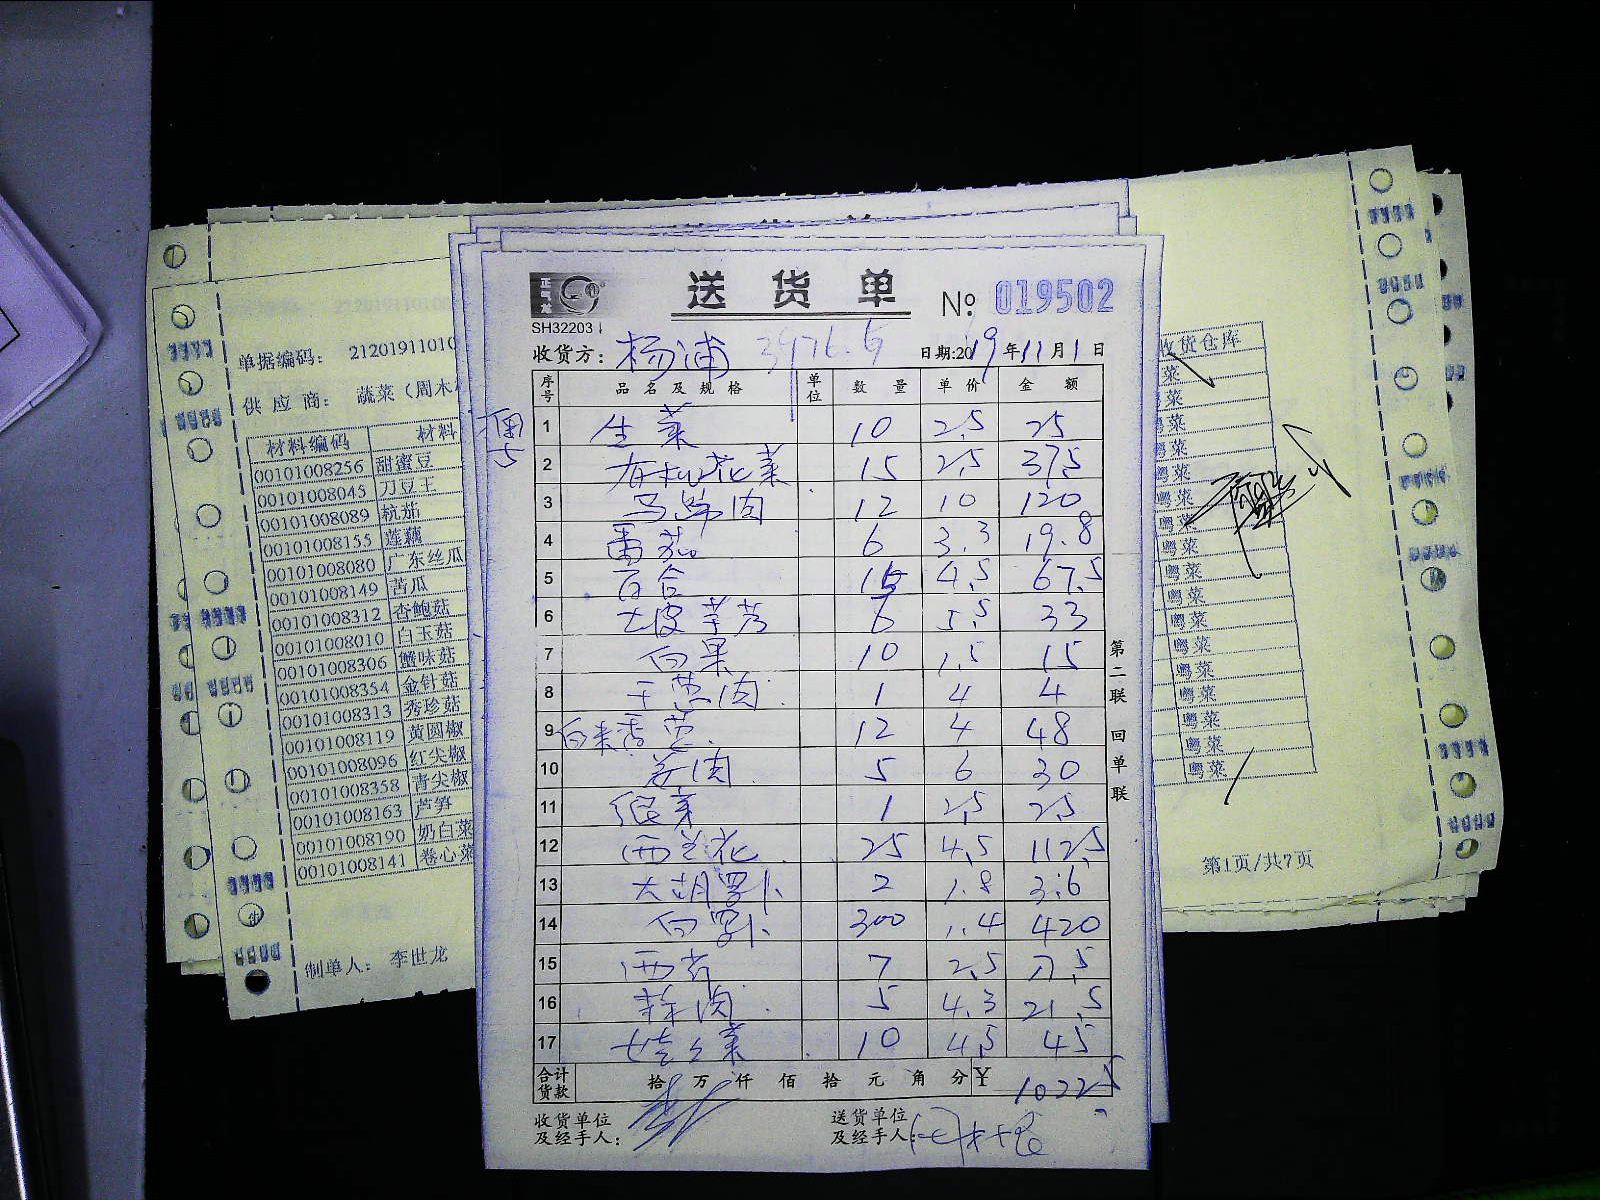 送 货 单
No: 019502
SH32203
收货方: 杨浦 3976.5 日期:2019年11月1日
序号 品名及规格 单位 数量 单价 金额
1 生菜 10 2.5 25
2 有机花菜 15 2.5 37.5
3 马蹄肉 12 10 120
4 番茄 6 3.3 19.8
5 百合 15 4.5 67.5
6 6 5.5 33
7 白果 10 1.5 15
8 干葱肉 1 4 4
9 12 4 48
10 姜肉 5 6 30
11 1 2.5 2.5
12 西兰花 25 4.5 112.5
13 大胡萝卜 2 1.8 3.6
14 白萝卜 300 1.4 420
15 西芹 7 2.5 17.5
16 蒜肉 5 4.3 21.5
17 娃娃菜 10 4.5 45
合计货款 拾 万 仟 佰 拾 元 角 分 ¥ 1022.5
收货单位及经手人:
送货单位及经手人:
第二联 回单联
单据编码: 21201911010
供应商: 蔬菜（周木
材料编码 材料
00101008256 甜蜜豆
00101008045 刀豆王
00101008089 杭茄
00101008155 莲藕
00101008080 广东丝瓜
00101008149 苦瓜
00101008312 杏鲍菇
00101008010 白玉菇
00101008306 蟹味菇
00101008354 金针菇
00101008313 秀珍菇
00101008119 黄圆椒
00101008096 红尖椒
00101008358 青尖椒
00101008163 芦笋
00101008190 奶白菜
00101008141 卷心菜
制单人: 李世龙
收货仓库
菜
菜
菜
菜
菜
粤菜
粤菜
粤菜
粤菜
粤菜
粤菜
粤菜
粤菜
粤菜
粤菜
粤菜
粤菜
第1页/共7页